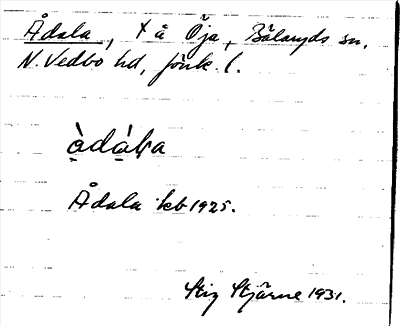 Ådala, × å Öja, Bälaryds sn,
N. Vedbo hd, Jönk. l.
àdàla
Ådala kb 1925.
Stig Stjärne 1931.